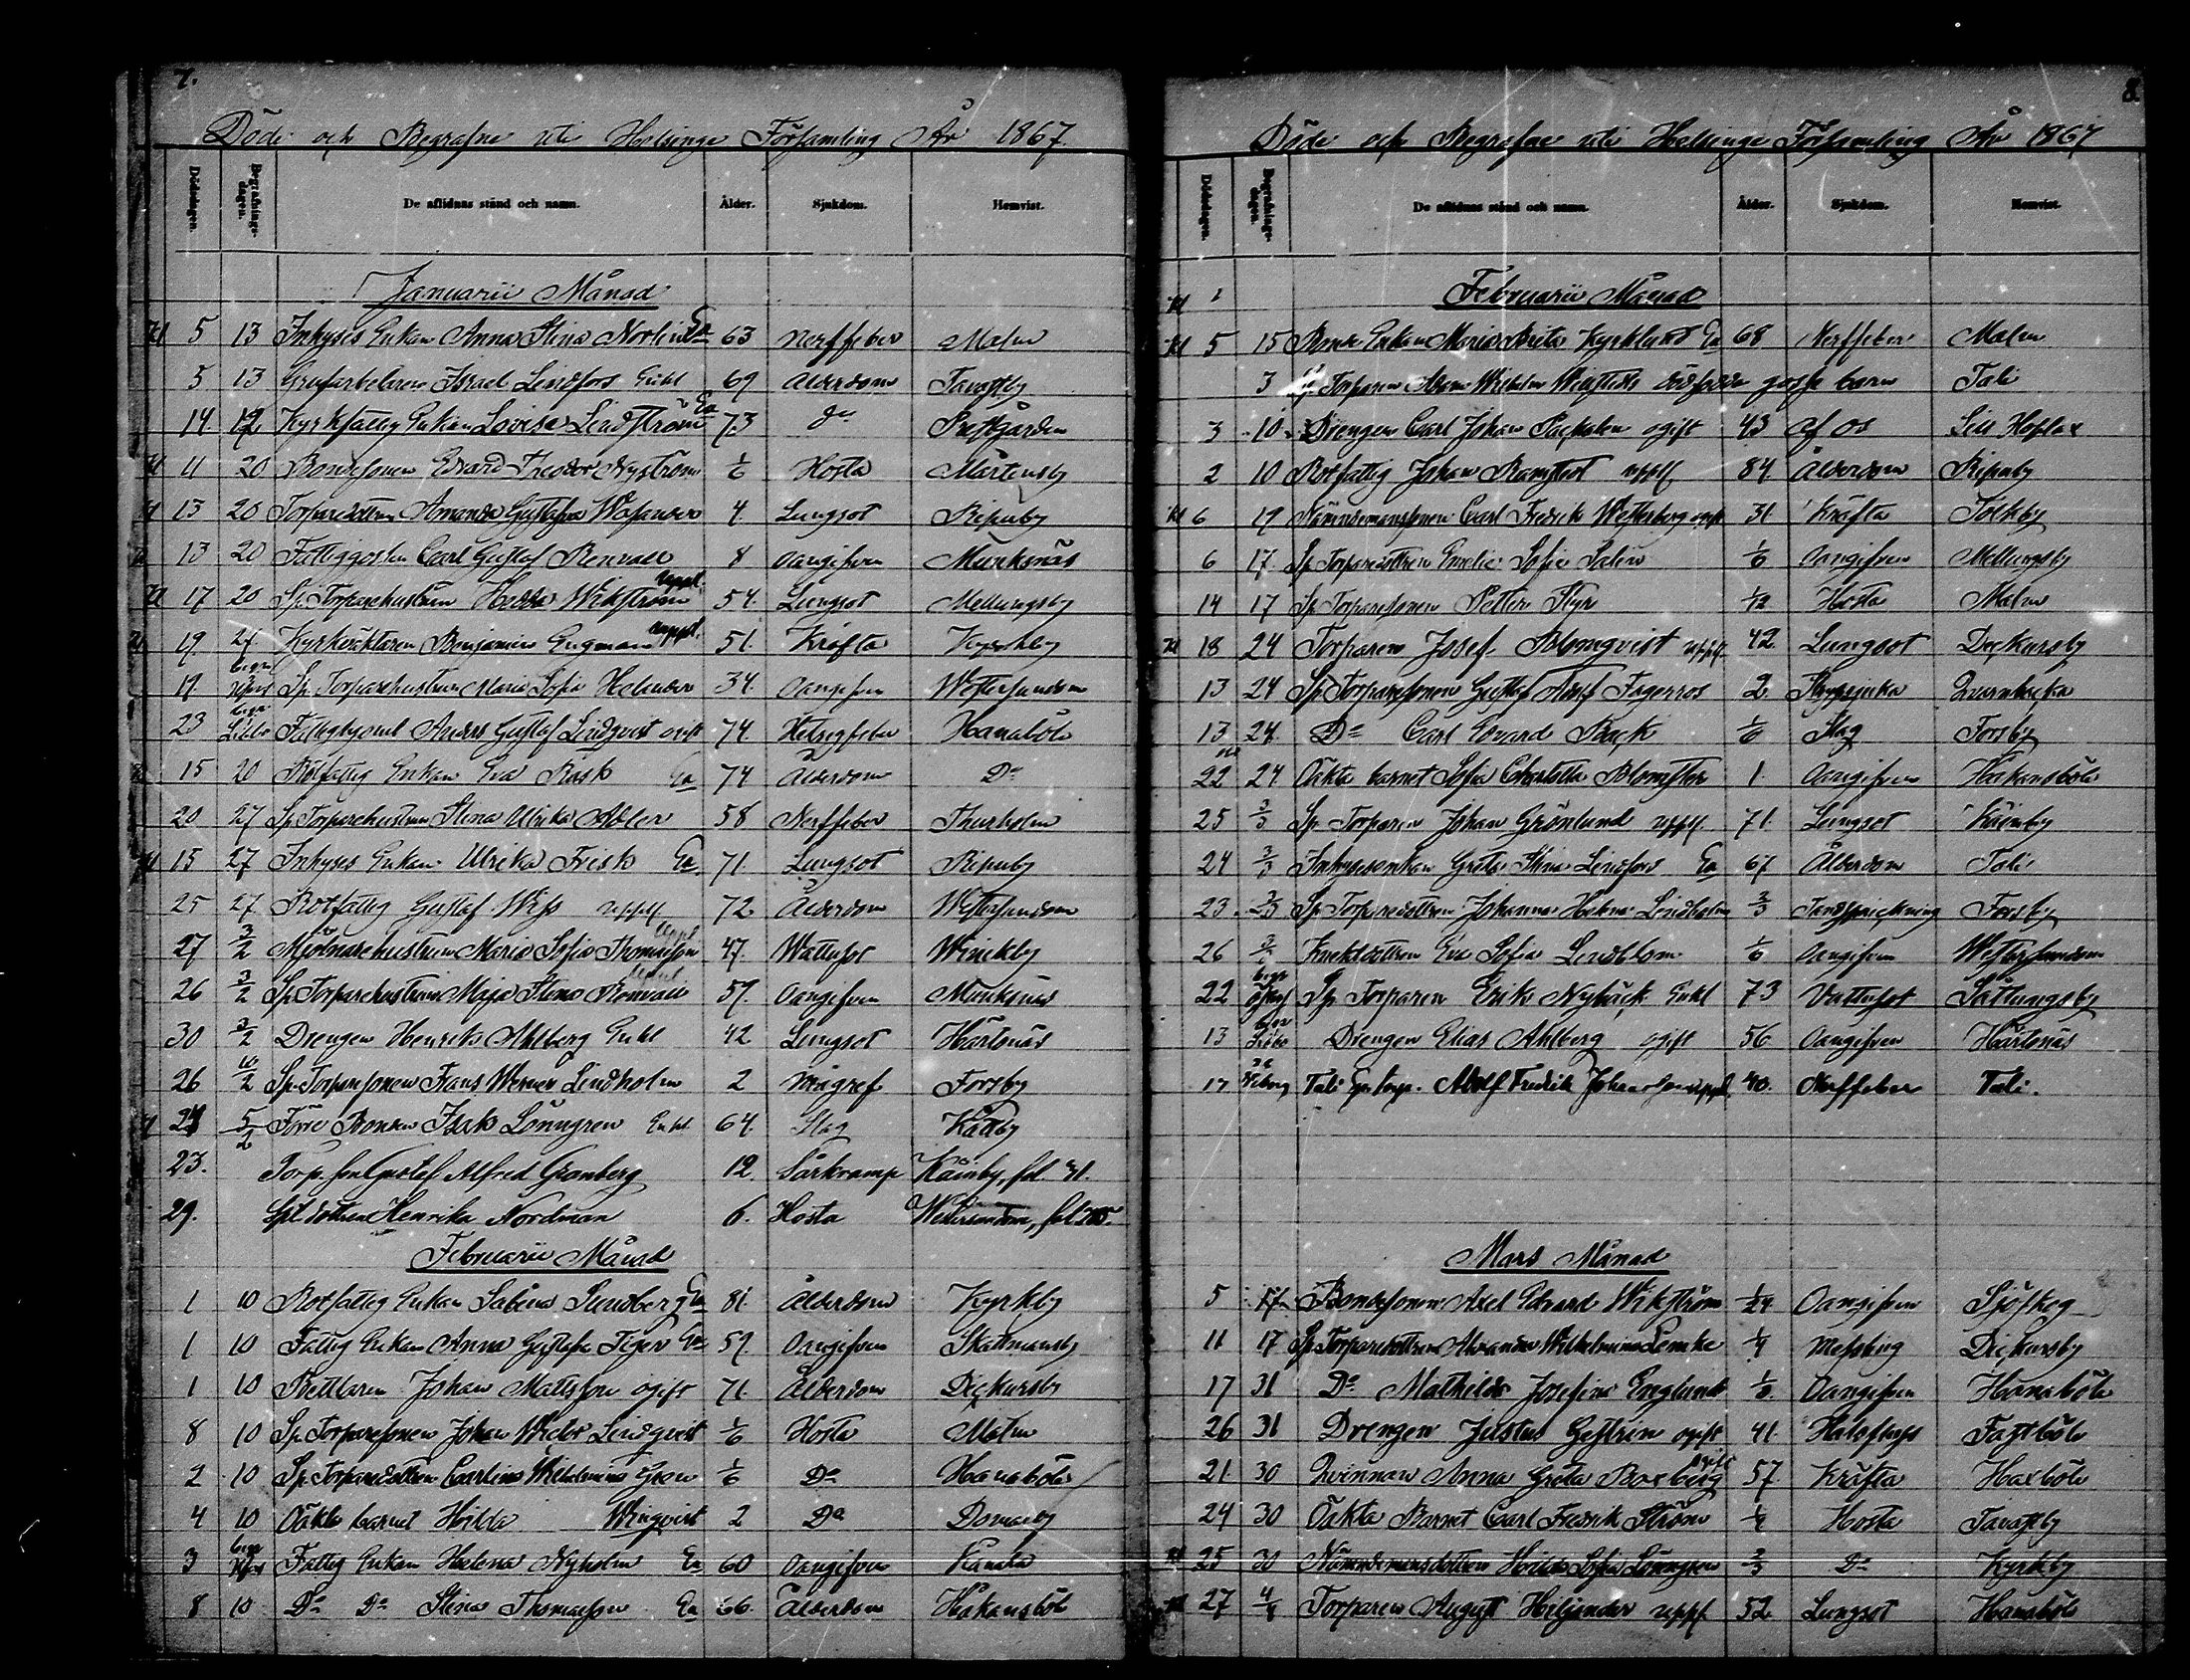 7.
Döde och Begrafne uti Helsinge Församling År 1867.
Dödsdagen. Begrafningsdagen. De aflidnas stånd och namn. Ålder. Sjukdom. Hemvist.
Januarii Månad
5 13 Inhyses Enkan Anna Stina Norlind Ea 63 Nerffeber Malm
5 13 Grufarbetaren Israel Lindfors Enkl 69 Ålderdom Tavastby
14 12 Kyrkfattig Enkan Lovisa Lindström Ea 73 do Prestgården
11 20 Bondesonen Edvard Theodor Nyström 1/6 Hosta Mårtensby
13 20 Torparedottren Amanda Gustafva Wasander 4. Lungsot Ripuby
13 20 Fattiggossen Carl Gustaf Renvall 8 Oangifven Munksnäs
17 20 Sp. Torparehustrun Hedda Wikström uppl. 54. Lungsot Mellungsby
19. 27. Kyrkväktaren Benjamin Engman uppl. 51. Kräfta Kyrkby
19. begr Sp. Torparehustrun Maria Sofia Helander 34. Oangifven Westersundom
23 begr Fattighjonet Anders Gustaf Lindqvist ogift 74. Hetsigfeber Hanaböle
15 20 Rotfattig Enkan Eva Rask Ea 74 Ålderdom Do
20 27 Sp. Torparehustrun Stina Ulrika Adler 58 Nerffeber Thurholm
15 27 Inhyses Enkan Ulrika Frisk Ea 71. Lungsot Ripuby
25 27 Rotfattig Gustaf Wiss uppl 72 Ålderdom Westersundom
27 3/2 Mjölnarehustrun Maria Sofia Thomasson uppl 47. Wattusot Winikby
26 3/2 Sp. Torparehustrun Maja Stina Renvall 59. Oangifven Munksnäs
30 3/2 Drengen Henrik Ahlberg Enkl 42 Lungsot Härtonäs
26 10/2 Sp. Torparesonen Frans Werner Lindholm 2 Forsby
24 5/2 Förre Bonden Isak Lönngren Enkl 64. Slag Kådby
23. Torp. son Gustaf Alfred Granberg 12. Kåinby, fol. 41.
29. Spt. dottren Henrika Nordman 6. Hosta Westersundom, fol
Februarii Månad
1 10 Rotfattig Enkan Sabina Sundberg Ea 81. Ålderdom Kyrkby
1 10 Fattig Enkan Anna Gustafva Tiger Ea 59. Oangifven Skattmansby
1 10 Bettlaren Johan Mattsson ogift 71. Ålderdom Dickursby
8 10 Sp. Torparesonen Johan Wictor Lindqvist 1/6 Hosta Malm
2 10 Sp. Torparedottren Carolina Wilhelmina Gran 1/6 Do Hanaböle
4 10 Oäkta barnet Hilda Winqvist 2 Do Domarby
3 begr Fattig Enkan Helena Nyholm Ea 60 Oangifven Kanala
8 10 Do Do Stina Thomasson Ea 66. Ålderdom Håkansböle
8.
Döde och Begrafne uti Helsinge Församling År 1867
Dödsdagen. Begrafningsdagen. De aflidnas stånd och namn. Ålder. Sjukdom. Hemvist.
Februarii Månad
5 15 Enkan Maria Brita Kyrklund Ea 68 Nerffeber Malm
3 Sp. Torparen Adam Wilhelm Wikstedts dödfödda gosse barn Tali
3 10 Drengen Carl Johan ogift 43 af os Lill Hoplax
2 10 Rotfattig Johan Ramstedt uppl 84. Ålderdom Ripuby
6 17 Nämndemanssonen Carl Fredrik Wetterberg ogift 31 Kräfta Tolkby
6 17. Sp. Torparedottren Emelie Sofia Salin 1/6 Oangifven Mellungsby
14 17 Sp. Torparesonen Petter Styr 1/12 Hosta Malm
18 24 Torparen Josef Blomqvist uppl. 42 Lungsot Dickursby
13 24 Sp. Torparesonen Gustaf Adolf Fagerros 2. Strypsjuka Qvarnbacka
13 24. Do Carl Edvard Back 1/6 Slag Forsby
22 24 Oäkta barnet Sofia Charlotta Blomster 1. Oangifven Håkansböle
25 3/3 Sp. Torparen Johan Grönlund uppl. 71. Lungsot Kåinby
24 3/3 Inhysesenkan Greta Stina Lindfors Ea 67 Ålderdom Tali
23. 3/3 Sp. Torparedottren Johanna Helena Lindholm 2/3 Tandsprickning Forsby
26 Knektdottren Eva Sofia Lindblom 1/6 Oangifven Westersundom
22 begr Sp. Torparen Erik Nybäck Enkl 73 Vattusot Sottungsby
13 begr Drengen Elias Ahlberg ogift 56 Oangifven Härtonäs
17 Tali Adolf Fredrik Johansson uppl. 40. Nerffeber Tali.
Mars Månad
5 Bondesonen Axel Edvard Wikström 1/24 Oangifven Sjöskog
11 17 Sp. Torparedottren Alexandra Wilhelmina Lemke 1/4 Messling Dickursby
17 31 Do Mathilda Josefina Englund Oangifven Hanaböle
26 31 Drengen Justus Gestrin ogift 41. Halsfluss Fastböle
21. 30 Qvinnan Anna Greta Boxberg ogift 57. Kräfta Haxböle
24 30 Oäkta Barnet Carl Fredrik Ström 1/4 Hosta Tavastby
25 30 Nämndemansdottren Hilda Sofia Lönngren 2/3 Do Kyrkby
27 4/4 Torparen August Heljander uppl 52 Lungsot Hanaböle